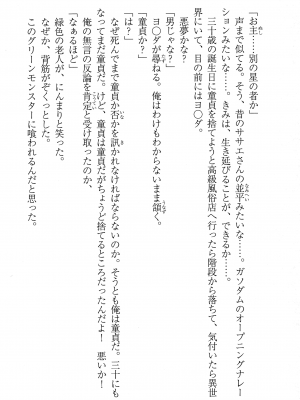 「お主……別の星の者か」
声まで似てる。そう、昔のササエさんの並平みたいな……。ガソダムのオープニングナレー
ションみたいな……。きみは、生き延びることが、できるか……。
三十歳の誕生日に童貞を捨てようと高級風俗店へ行ったら階段から落ちて、気付いたら異世
界にいて、目の前にはヨ〇ダ。
悪夢かな？
「男じゃな？」
ヨ〇ダが尋ねる。俺はわけもわからないまま頷く。
「童貞か？」
「は？」
なぜ死んでまで童貞か否かを訊かれなければならないのか。そうとも俺は童貞だ。三十にも
なってまだ童貞だ。けど、童貞は童貞だがちょうど捨てるところだったんだよ！　悪いか！
俺の無言の反論を肯定と受け取ったのか、
「なぁるほど」
緑色の老人が、にんまりと笑った。
なぜか、背筋がぞくっとした。
このグリーンモンスターに喰われるんだと思った。